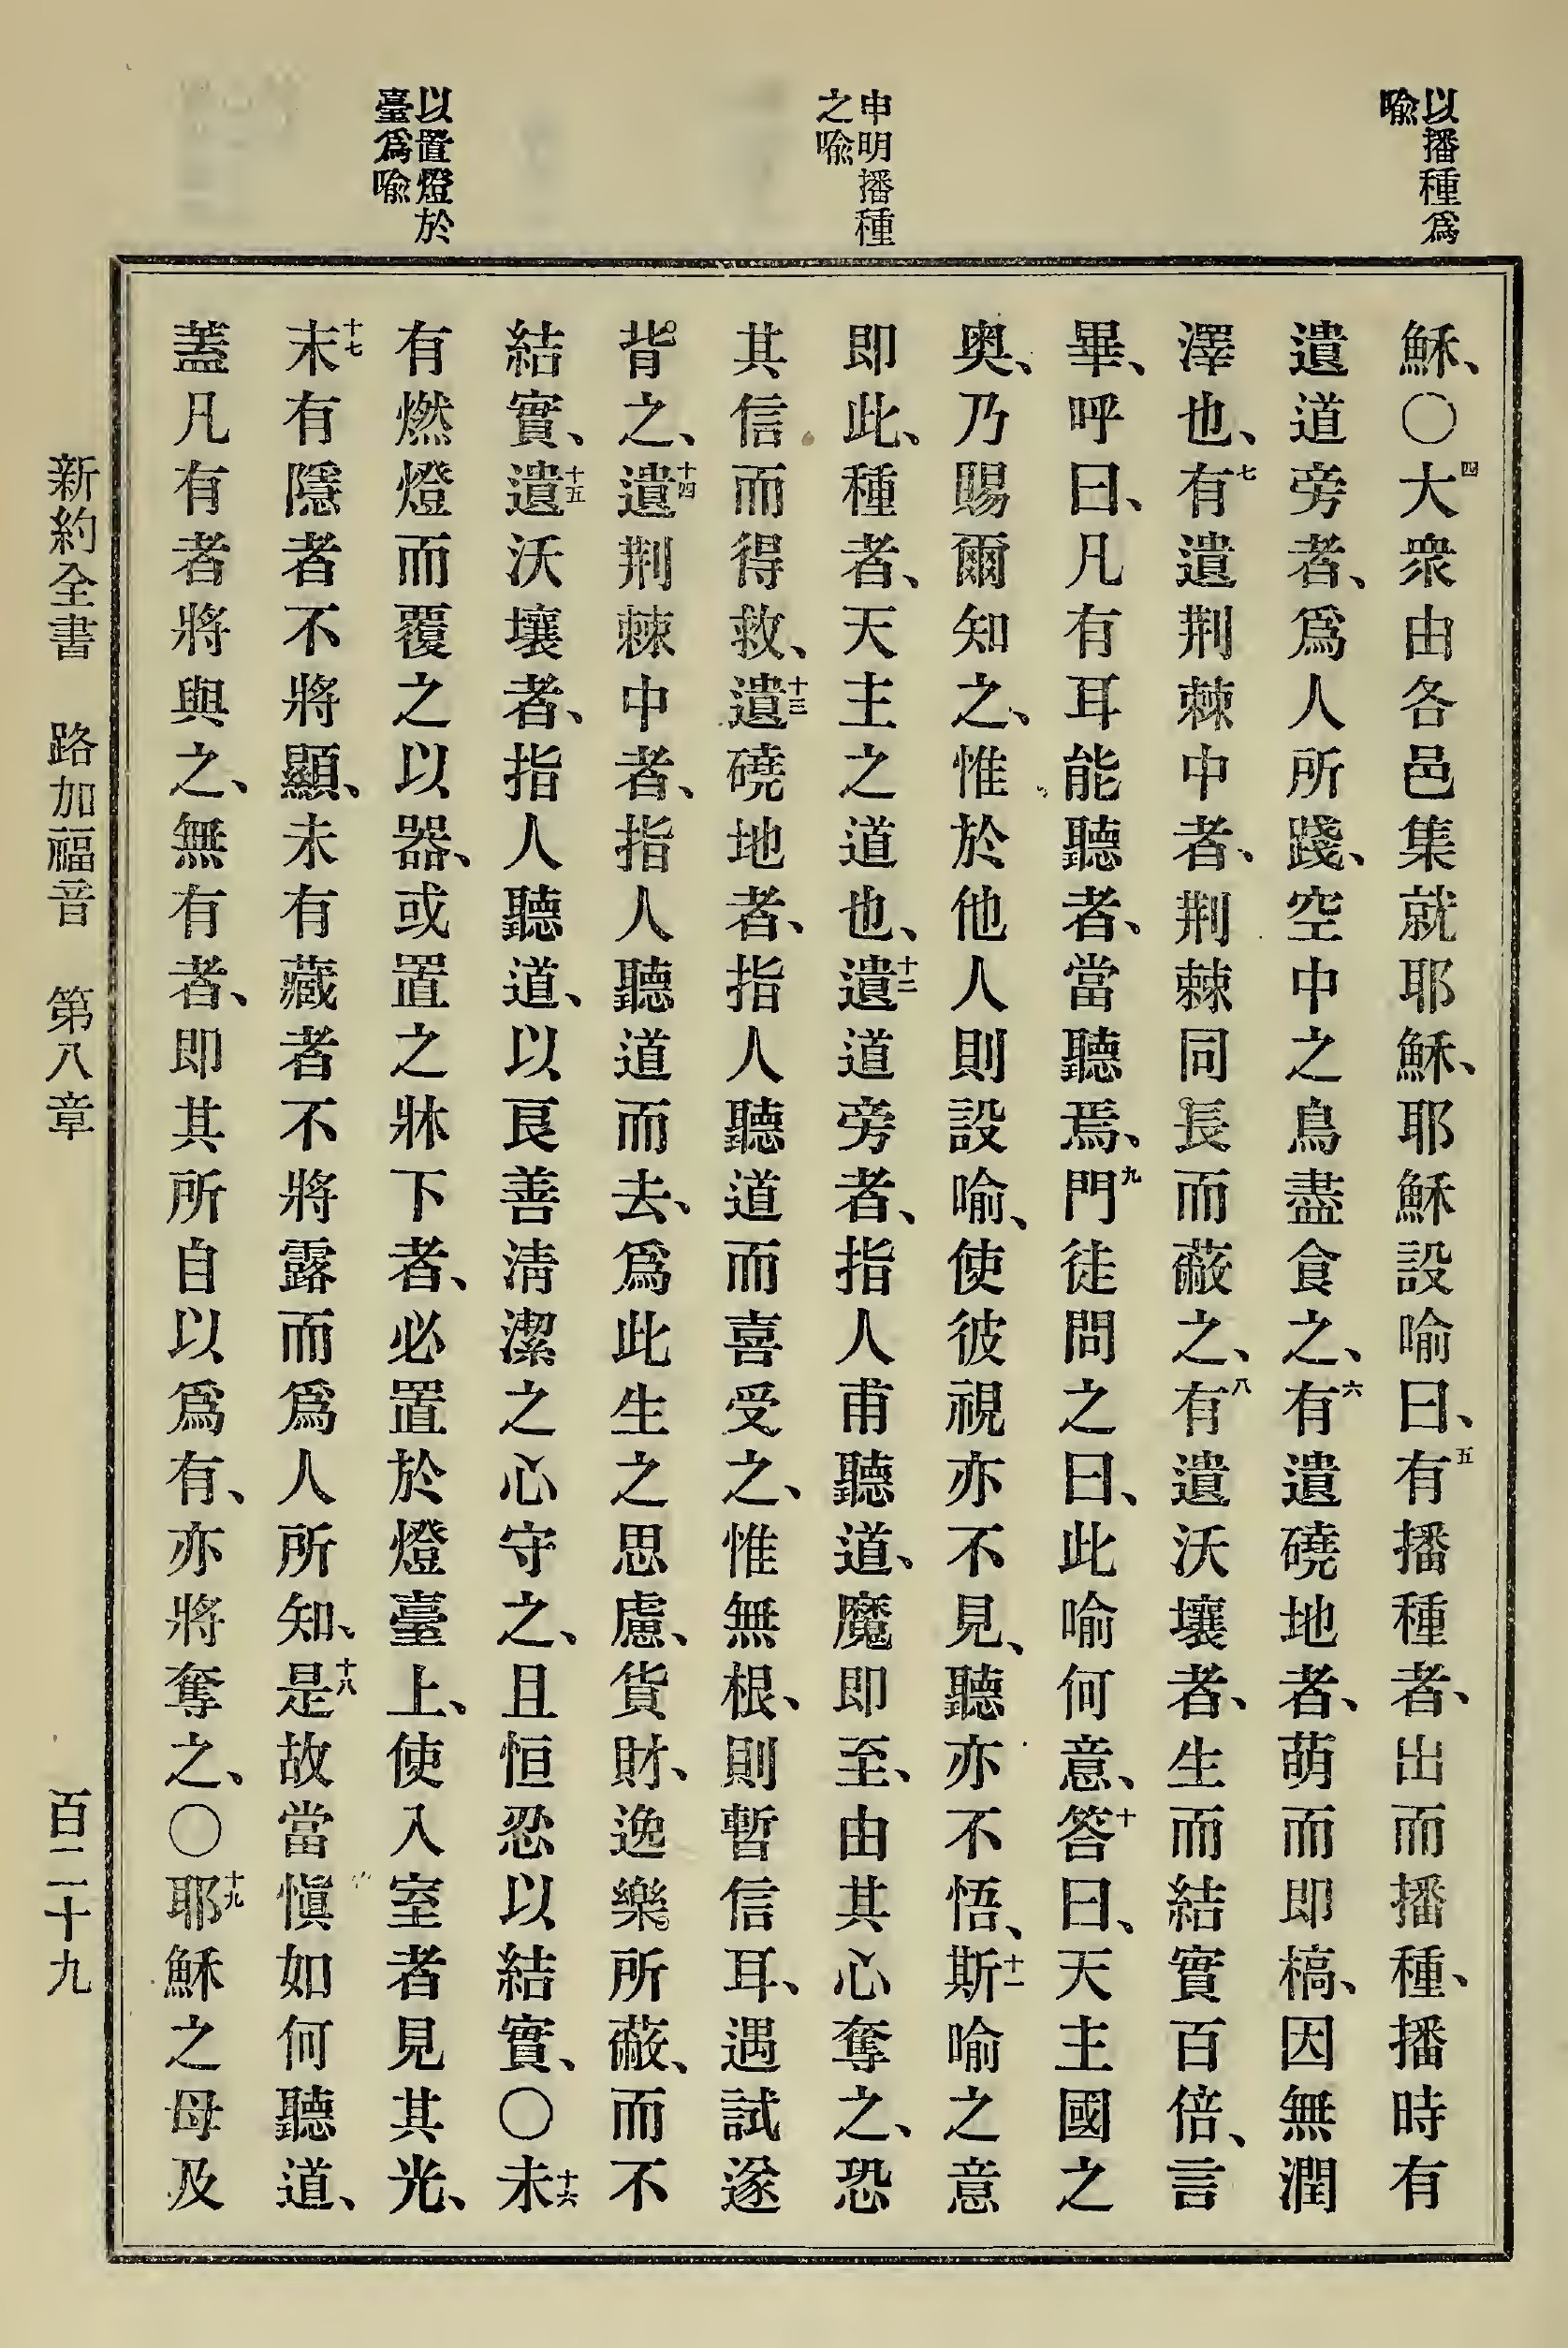 以播種爲
喩
申明播種
之喩
以置燈於
臺爲喩
穌、〇四大衆由各邑集就耶穌、耶穌設喻曰、五有播種者、出而播種、播時有
遺道旁者、爲人所踐、空中之鳥盡食之、六有遺磽地者、萌而即槁、因無潤
澤也、七有遺荆棘中者、荆棘同長而蔽之、八有遺沃壤者、生而結實百倍、言
畢、呼曰、凡有耳能聽者、當聽焉、九門徒問之曰、此喻何意、十答曰、天主國之
奥、乃賜爾知之、惟於他人則設喻、使彼視亦不見、聽亦不悟、十一斯喻之意
即此、種者、天主之道也、十二遺道旁者、指人甫聽道、魔即至、由其心奪之、恐
其信而得救、十三遺磽地者、指人聽道而喜受之、惟無根、則暫信耳、遇試遂
背之、十四遺荆棘中者、指人聽道而去、爲此生之思慮、貨財、逸樂所蔽、而不
結實、十五遺沃壤者、指人聽道、以良善淸潔之心守之、且恒忍以結實、〇十六未
有燃燈而覆之以器、或置之牀下者、必置於燈臺上、使入室者見其光、
十七未有隱者不將顯、未有藏者不將露而爲人所知、十八是故當愼如何聽道、
蓋凡有者將與之、無有者、即其所自以爲有、亦將奪之、〇十九耶穌之母及
新約全書 路加福音 第八章 百二十九